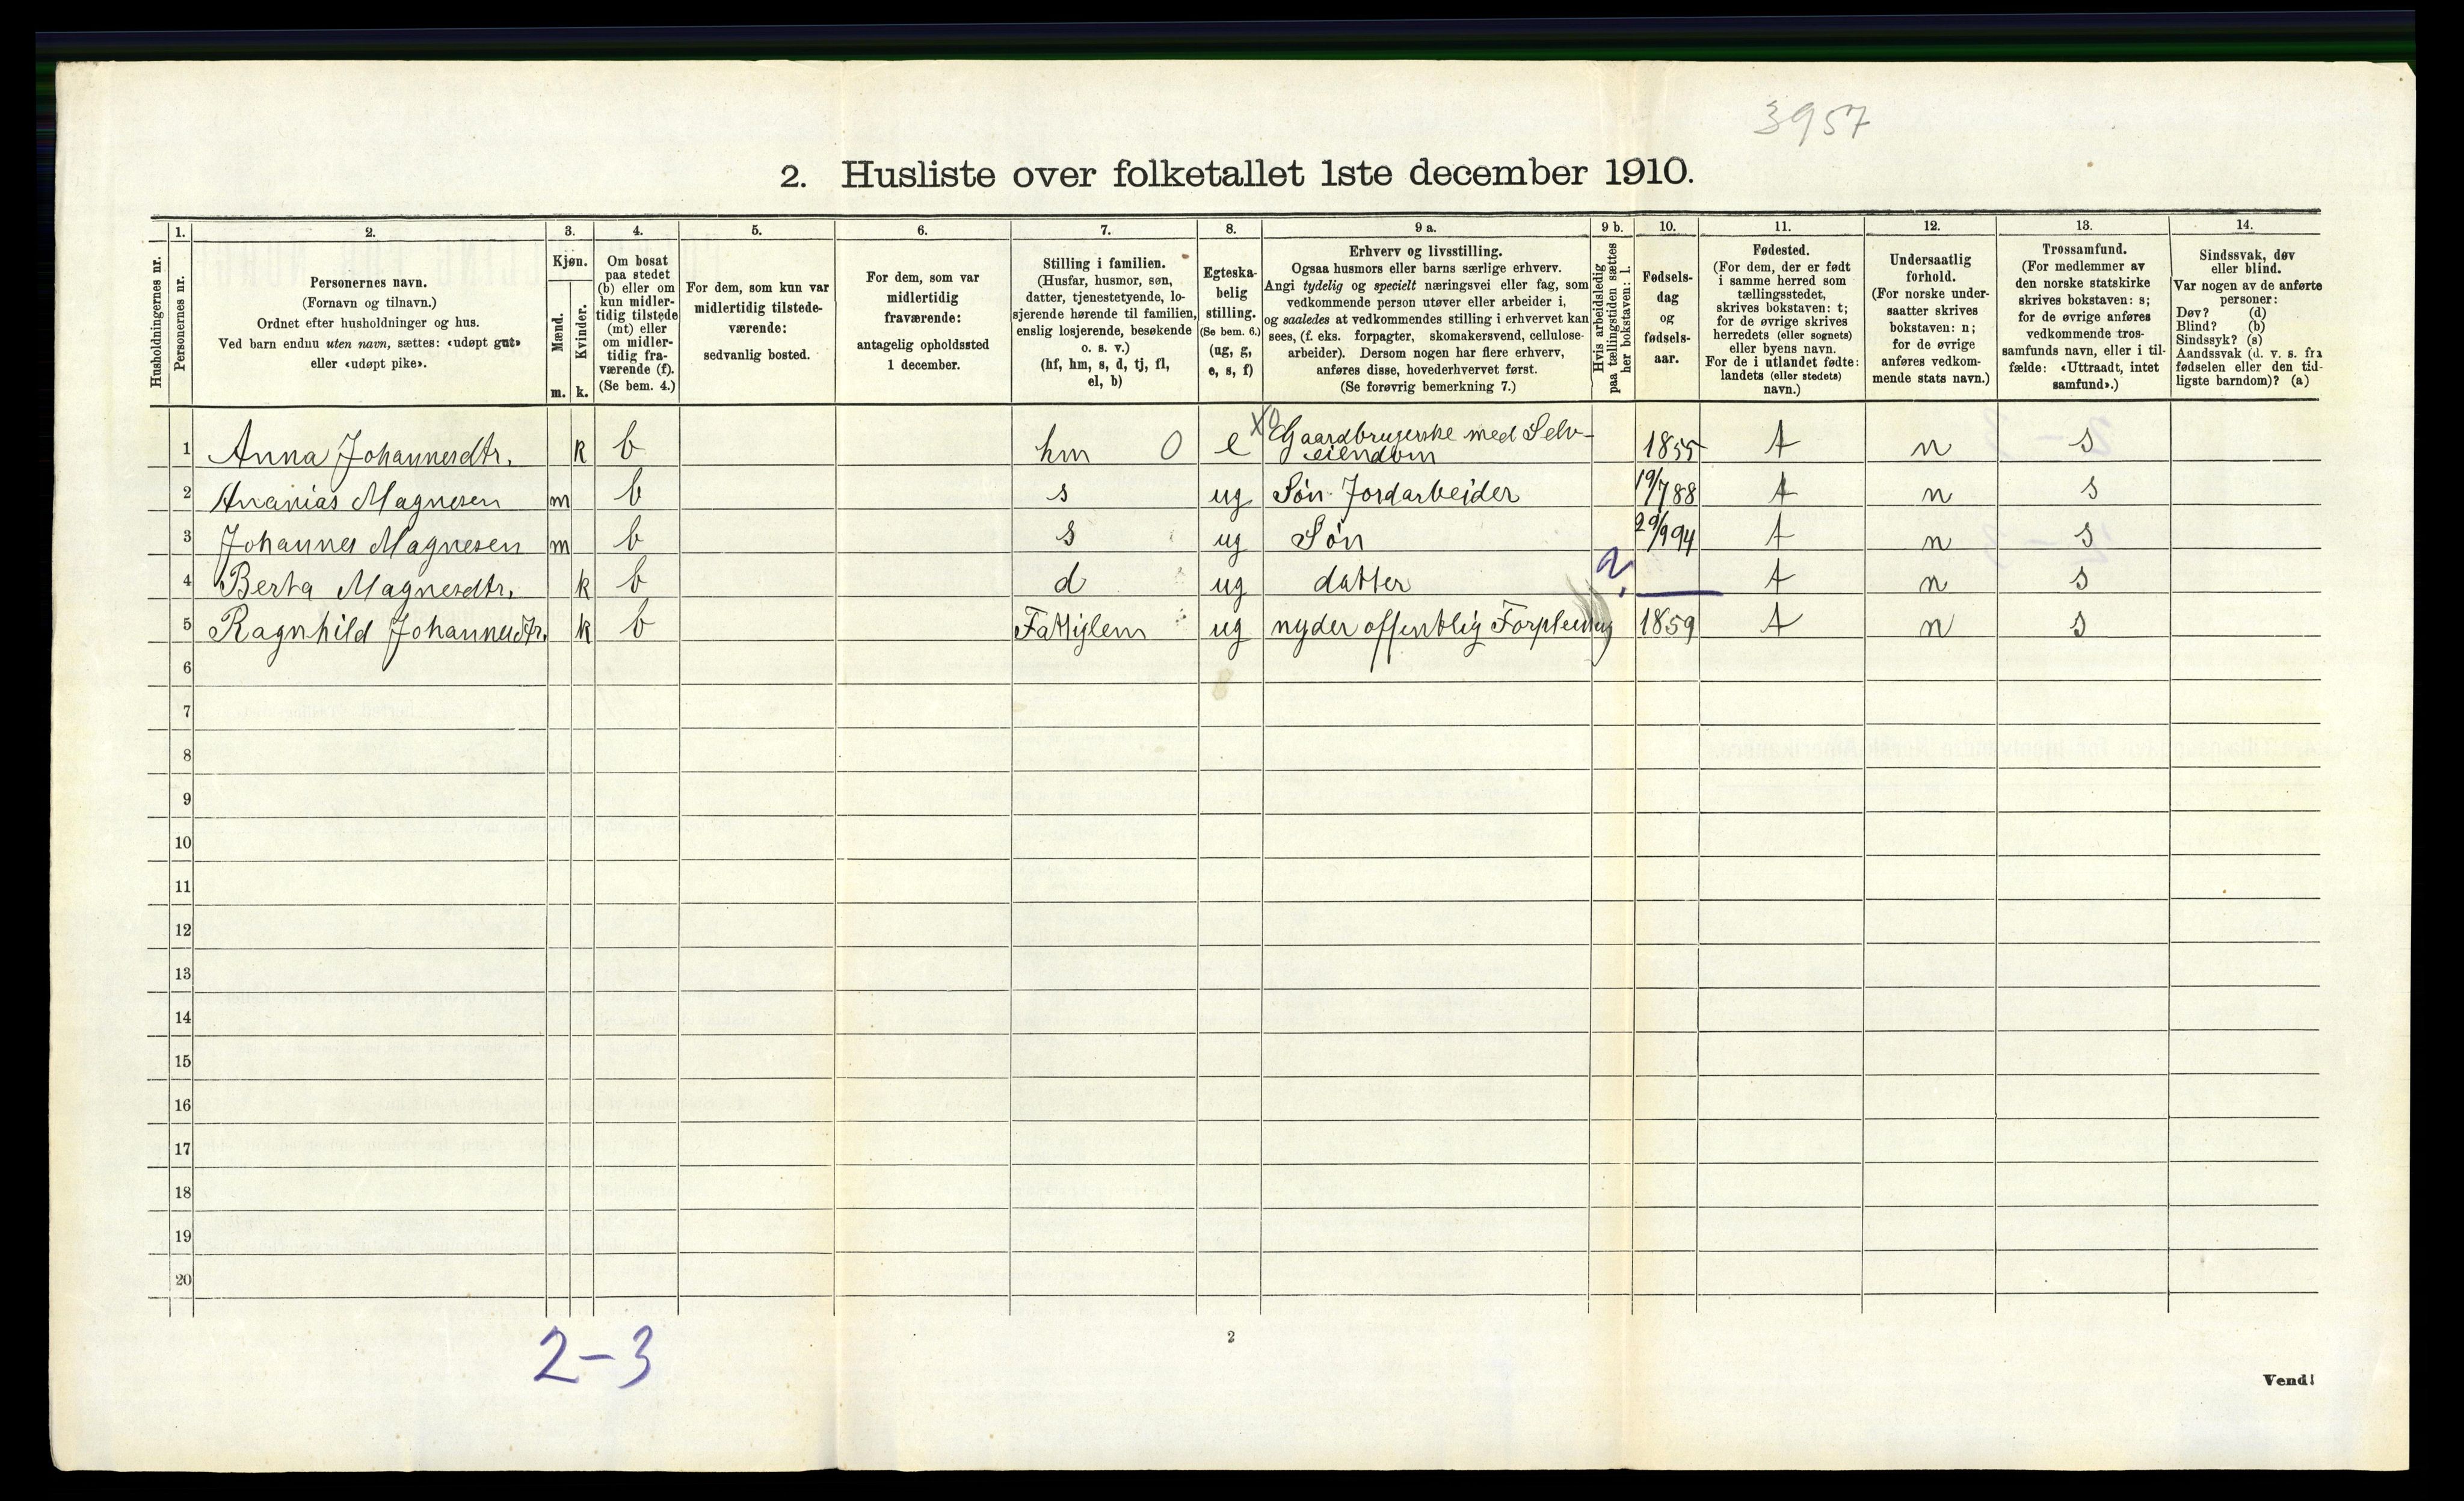 3957
2. Husliste over folketallet 1ste december 1910.
Husholdningernes nr.
1.
Personernes nr.
2.
Personernes navn.
(Fornavn og tilnavn.)
Ordnet efter husholdninger og hus.
Ved barn endnu uten navn, sættes: «udøpt gut»
eller «udøpt pike».
3.
Kjøn.
Mænd.
Kvinder.
m. k.
4.
Om bosat
paa stedet
(b) eller om
kun midler-
tidig tilstede
(mt) eller
om midler-
tidig fra-
værende (f).
(Se bem. 4.)
5.
For dem, som kun var
midlertidig tilstede-
værende:
sedvanlig bosted.
6.
For dem, som var
midlertidig
fraværende:
antagelig opholdssted
1 december.
7.
Stilling i familien.
(Husfar, husmor, søn,
datter, tjenestetyende, lo-
sjerende hørende til familien,
enslig losjerende, besøkende
o. s. v.)
(hf, hm, s, d, tj, fl,
el, b)
8.
Egteska-
belig
stilling.
(Se bem. 6.)
(ug, g,
e, s, f)
9 a.
Erhverv og livsstilling.
Ogsaa husmors eller barns særlige erhverv.
Angi tydelig og specielt næringsvei eller fag, som
vedkommende person utøver eller arbeider i,
og saaledes at vedkommendes stilling i erhvervet kan
sees, (f. eks. forpagter, skomakersvend, cellulose-
arbeider). Dersom nogen har flere erhverv,
anføres disse, hovederhvervet først.
(Se forøvrig bemerkning 7.)
9 b.
Hvis arbeidsledig
paa tællingstiden sættes
her bokstaven: l.
10.
Fødsels-
dag
og
fødsels-
aar.
11.
Fødested.
(For dem, der er født
i samme herred som
tællingsstedet,
skrives bokstaven: t;
for de øvrige skrives
herredets (eller sognets)
eller byens navn.
For de i utlandet fødte:
landets (eller stedets)
navn.)
12.
Undersaatlig
forhold.
(For norske under-
saatter skrives
bokstaven: n;
for de øvrige
anføres vedkom-
mende stats navn.)
13.
Trossamfund.
(For medlemmer av
den norske statskirke
skrives bokstaven: s;
for de øvrige anføres
vedkommende tros-
samfunds navn, eller i til-
fælde: «Uttraadt, intet
samfund».)
14.
Sindssvak, døv
eller blind.
Var nogen av de anførte
personer:
Døv? (d)
Blind? (b)
Sindssyk? (s)
Aandssvak (d. v. s. fra
fødselen eller den tid-
ligste barndom)? (a)
1 Anna Johannesdtr. k b hm 0 e Gaardbrugerske med Selv-
eiendom 1855 t n s
2 Ananias Magnesen m b s ug Søn Jordarbeider 19/7 88 t n s
3 Johannes Magnesen m b s ug Søn 29/9 94 t n s
4 Berta Magnesdtr. k b d ug datter ? — t n s
5 Ragnhild Johannesdtr. k b Fattiglem ug nyder offentlig Forpleining 1859 t n s
6
7
8
9
10
11
12
13
14
15
16
17
18
19
20
2-3
2
Vend!